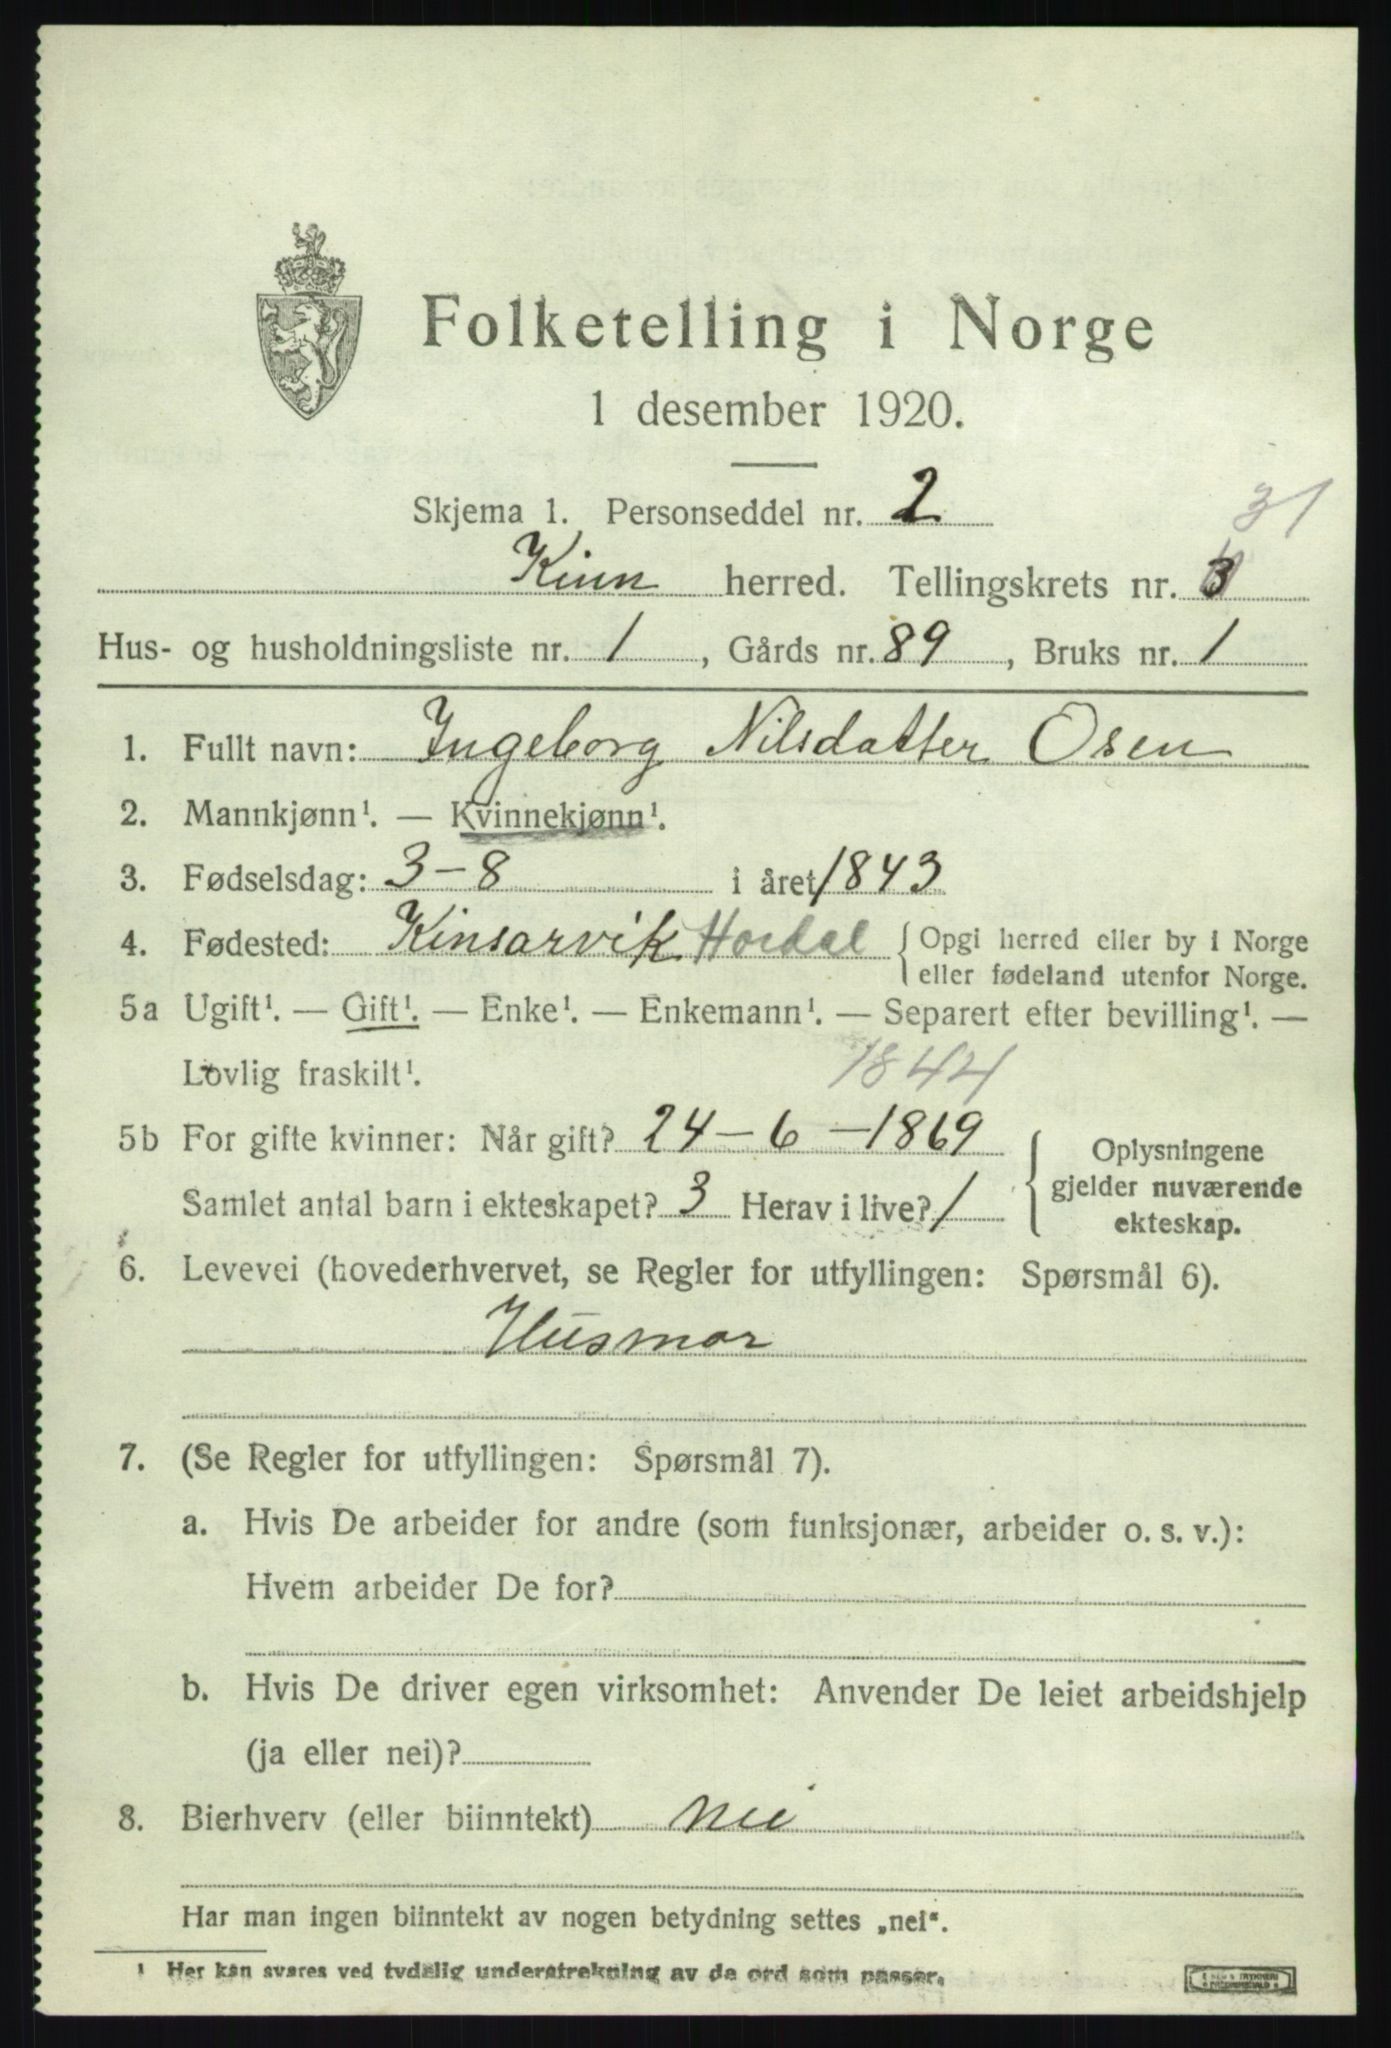 Folketelling i Norge
1 desember 1920.
Skjema 1. Personseddel nr. 2
31
Kinn herred. Tellingskrets nr. 3
Hus- og husholdningsliste nr. 1, Gårds nr. 89, Bruks nr. 1
1. Fullt navn: Ingeborg Nilsdatter Osen
2. Mannkjønn¹. — Kvinnekjønn¹.
3. Fødselsdag: 3-8 i året 1843
4. Fødested: Kinsarvik Hordal { Opgi herred eller by i Norge
eller fødeland utenfor Norge.
5a Ugift¹. — Gift¹. — Enke¹. — Enkemann¹. — Separert efter bevilling¹. —
Lovlig fraskilt¹.
1844
5b For gifte kvinner: Når gift? 24-6-1869
Samlet antal barn i ekteskapet? 3 Herav i live? 1
Oplysningene
gjelder nuværende
ekteskap.
6. Levevei (hovederhvervet, se Regler for utfyllingen: Spørsmål 6).
Husmor
7. (Se Regler for utfyllingen: Spørsmål 7).
a. Hvis De arbeider for andre (som funksjonær, arbeider o. s. v.):
Hvem arbeider De for?
b. Hvis De driver egen virksomhet: Anvender De leiet arbeidshjelp
(ja eller nei)?
8. Bierhverv (eller biinntekt) nei
Har man ingen biinntekt av nogen betydning settes „nei“.
¹ Her kan svares ved tydelig understrekning av de ord som passer.